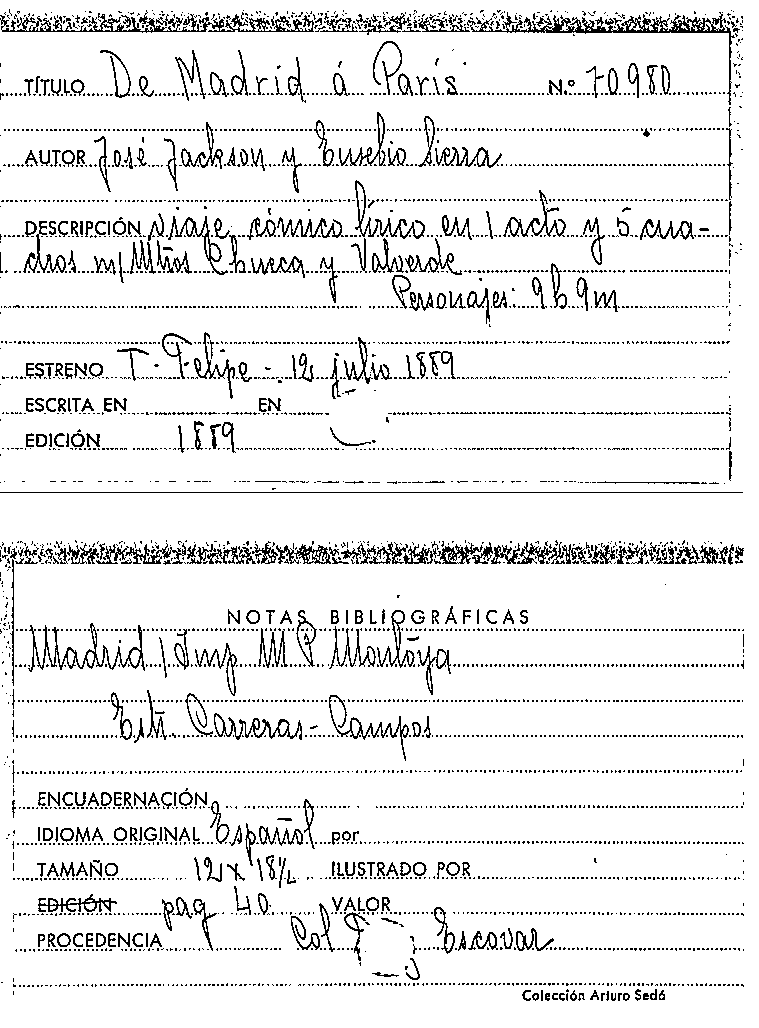 TÍTULO De Madrid á París N.º 70980
AUTOR José Jackson y Eusebio Sierra
DESCRIPCIÓN viaje cómico lírico en 1 acto y 5 cua-
dros m/ Mtros Chueca y Valverde
Personajes: 9h 9m
ESTRENO T. Felipe - 12 julio 1889
ESCRITA EN EN
EDICIÓN 1889
NOTAS BIBLIOGRÁFICAS
Madrid / Imp M P Montoya
Estr. Carreras-Campos
ENCUADERNACIÓN
IDIOMA ORIGINAL Español por
TAMAÑO 12 x 18½ ILUSTRADO POR
EDICIÓN pag 40 VALOR
PROCEDENCIA Col Escovar
Colección Arturo Sedó